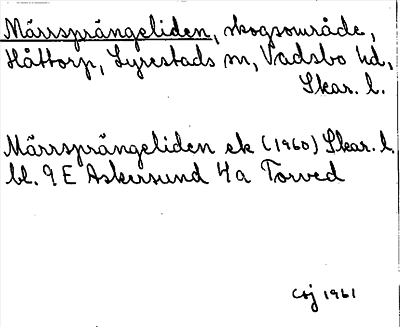 Märrsprängeliden, skogsområde,
Håttorp, Lyrestads sn, Vadsbo hd,
Skar. l.
Märrsprängeliden ek (1960) Skar. l.
bl. 9 E Askersund 4a Torved
CSj 1961